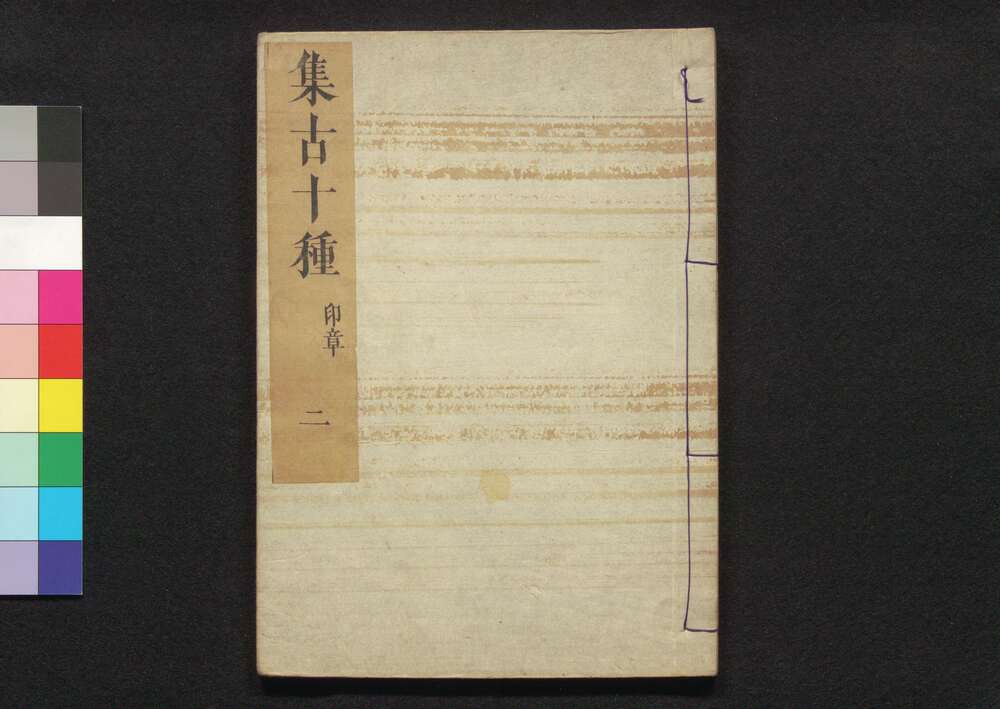 集古十種
印章
二